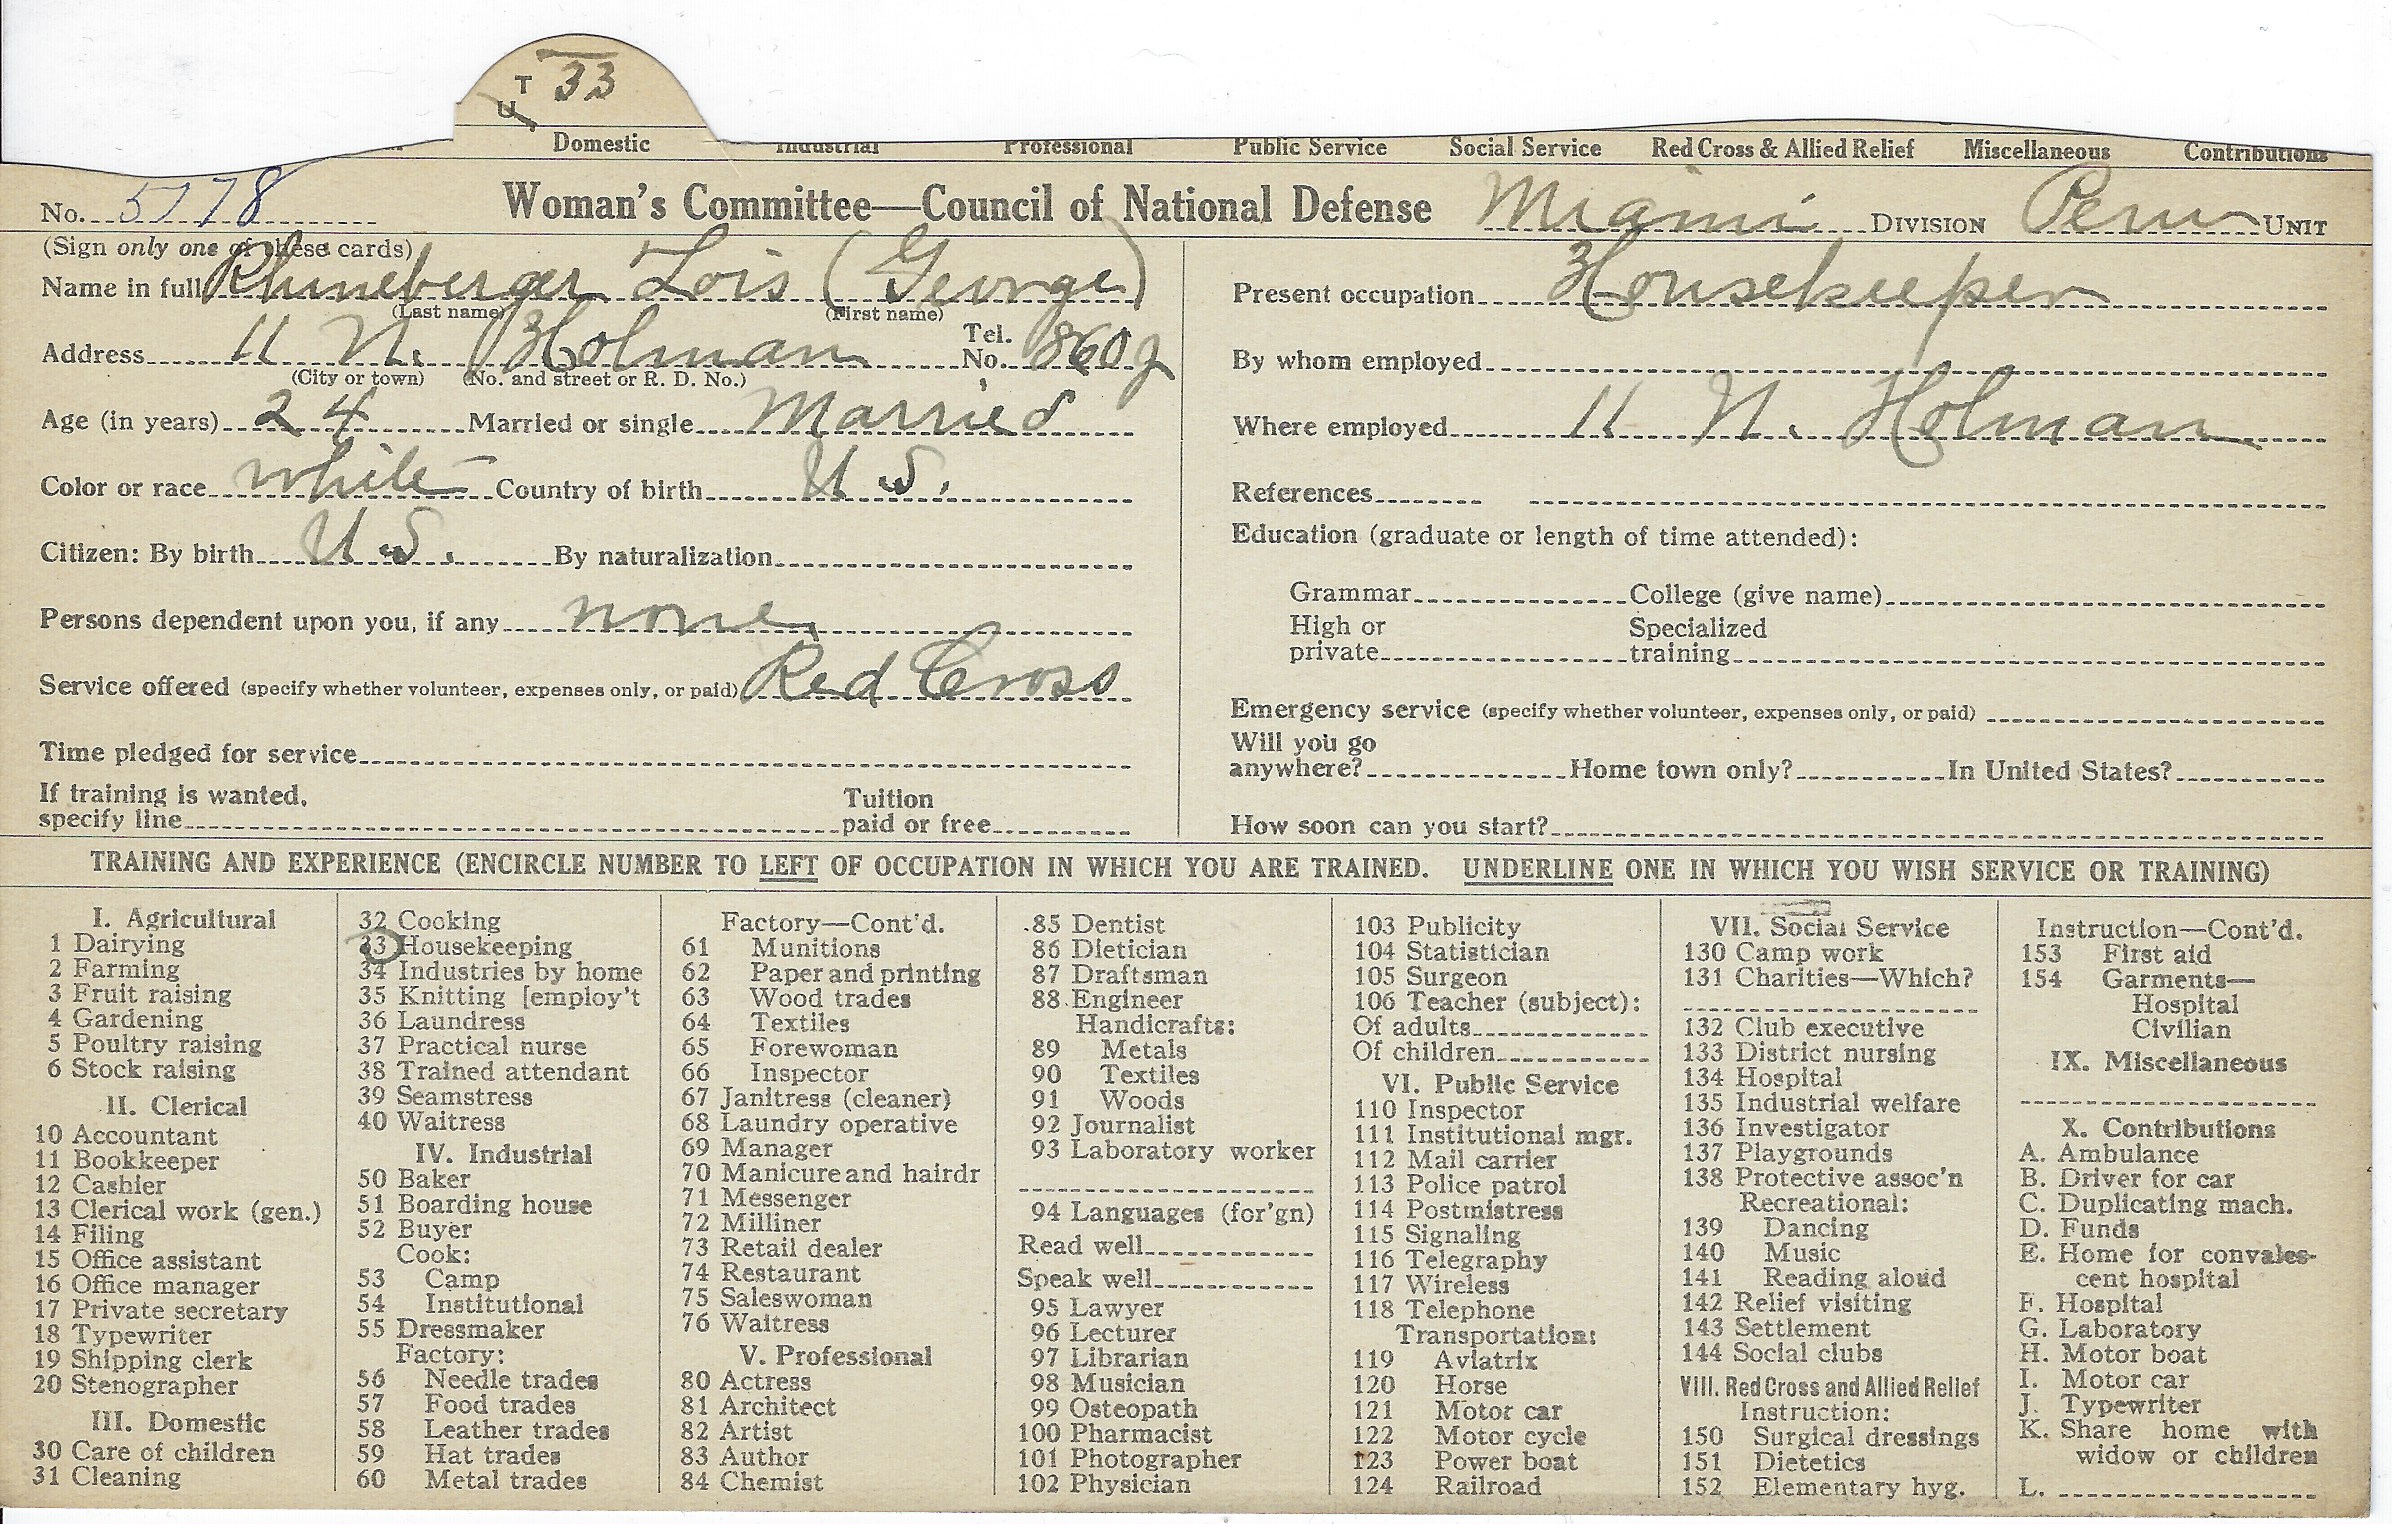 T 33
U
Domestic Industrial Professional Public Service Social Service Red Cross & Allied Relief Miscellaneous Contributions
No. 5778 Woman's Committee—Council of National Defense Miami DIVISION Peru UNIT
(Sign only one of these cards)
Name in full Rhineberger Lois (George)
(Last name) (First name)
Address 11 N. Holman Tel. No. 860 J
(City or town) (No. and street or R. D. No.)
Age (in years) 24 Married or single Married
Color or race white Country of birth U.S.
Citizen: By birth U.S. By naturalization
Persons dependent upon you, if any none
Service offered (specify whether volunteer, expenses only, or paid) Red Cross
Time pledged for service
If training is wanted, specify line Tuition paid or free
Present occupation Housekeeper
By whom employed
Where employed 11 N. Holman
References
Education (graduate or length of time attended):
Grammar College (give name)
High or private Specialized training
Emergency service (specify whether volunteer, expenses only, or paid)
Will you go anywhere? Home town only? In United States?
How soon can you start?
TRAINING AND EXPERIENCE (ENCIRCLE NUMBER TO LEFT OF OCCUPATION IN WHICH YOU ARE TRAINED. UNDERLINE ONE IN WHICH YOU WISH SERVICE OR TRAINING)
I. Agricultural
1 Dairying
2 Farming
3 Fruit raising
4 Gardening
5 Poultry raising
6 Stock raising
II. Clerical
10 Accountant
11 Bookkeeper
12 Cashier
13 Clerical work (gen.)
14 Filing
15 Office assistant
16 Office manager
17 Private secretary
18 Typewriter
19 Shipping clerk
20 Stenographer
III. Domestic
30 Care of children
31 Cleaning
32 Cooking
33 Housekeeping
34 Industries by home
35 Knitting [employ't
36 Laundress
37 Practical nurse
38 Trained attendant
39 Seamstress
40 Waitress
IV. Industrial
50 Baker
51 Boarding house
52 Buyer
Cook:
53 Camp
54 Institutional
55 Dressmaker
Factory:
56 Needle trades
57 Food trades
58 Leather trades
59 Hat trades
60 Metal trades
Factory—Cont'd.
61 Munitions
62 Paper and printing
63 Wood trades
64 Textiles
65 Forewoman
66 Inspector
67 Janitress (cleaner)
68 Laundry operative
69 Manager
70 Manicure and hairdr
71 Messenger
72 Milliner
73 Retail dealer
74 Restaurant
75 Saleswoman
76 Waitress
V. Professional
80 Actress
81 Architect
82 Artist
83 Author
84 Chemist
85 Dentist
86 Dietician
87 Draftsman
88 Engineer
Handicrafts:
89 Metals
90 Textiles
91 Woods
92 Journalist
93 Laboratory worker
94 Languages (for'gn)
Read well
Speak well
95 Lawyer
96 Lecturer
97 Librarian
98 Musician
99 Osteopath
100 Pharmacist
101 Photographer
102 Physician
103 Publicity
104 Statistician
105 Surgeon
106 Teacher (subject):
Of adults
Of children
VI. Public Service
110 Inspector
111 Institutional mgr.
112 Mail carrier
113 Police patrol
114 Postmistress
115 Signaling
116 Telegraphy
117 Wireless
118 Telephone
Transportation:
119 Aviatrix
120 Horse
121 Motor car
122 Motor cycle
123 Power boat
124 Railroad
VII. Social Service
130 Camp work
131 Charities—Which?
132 Club executive
133 District nursing
134 Hospital
135 Industrial welfare
136 Investigator
137 Playgrounds
138 Protective assoc'n
Recreational:
139 Dancing
140 Music
141 Reading aloud
142 Relief visiting
143 Settlement
144 Social clubs
VIII. Red Cross and Allied Relief
Instruction:
150 Surgical dressings
151 Dietetics
152 Elementary hyg.
Instruction—Cont'd.
153 First aid
154 Garments—
Hospital
Civilian
IX. Miscellaneous
X. Contributions
A. Ambulance
B. Driver for car
C. Duplicating mach.
D. Funds
E. Home for convales-
cent hospital
F. Hospital
G. Laboratory
H. Motor boat
I. Motor car
J. Typewriter
K. Share home with
widow or children
L.